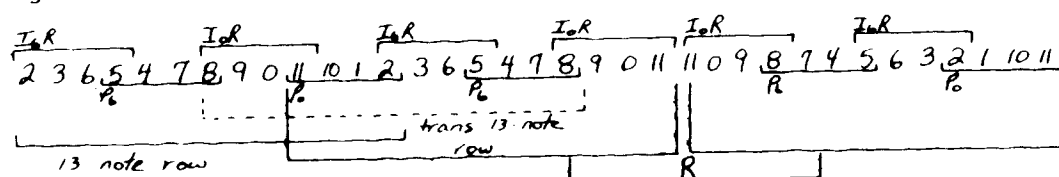 I₆R I₀R I₆R I₀R I₀R I₆R
2 3 6 5 4 7 8 9 0 11 10 1 2 3 6 5 4 7 8 9 0 11 11 0 9 8 7 4 5 6 3 2 1 10 11
P₆ P₀ P₆ P₆ P₀
trans 13-note
13 note row row R